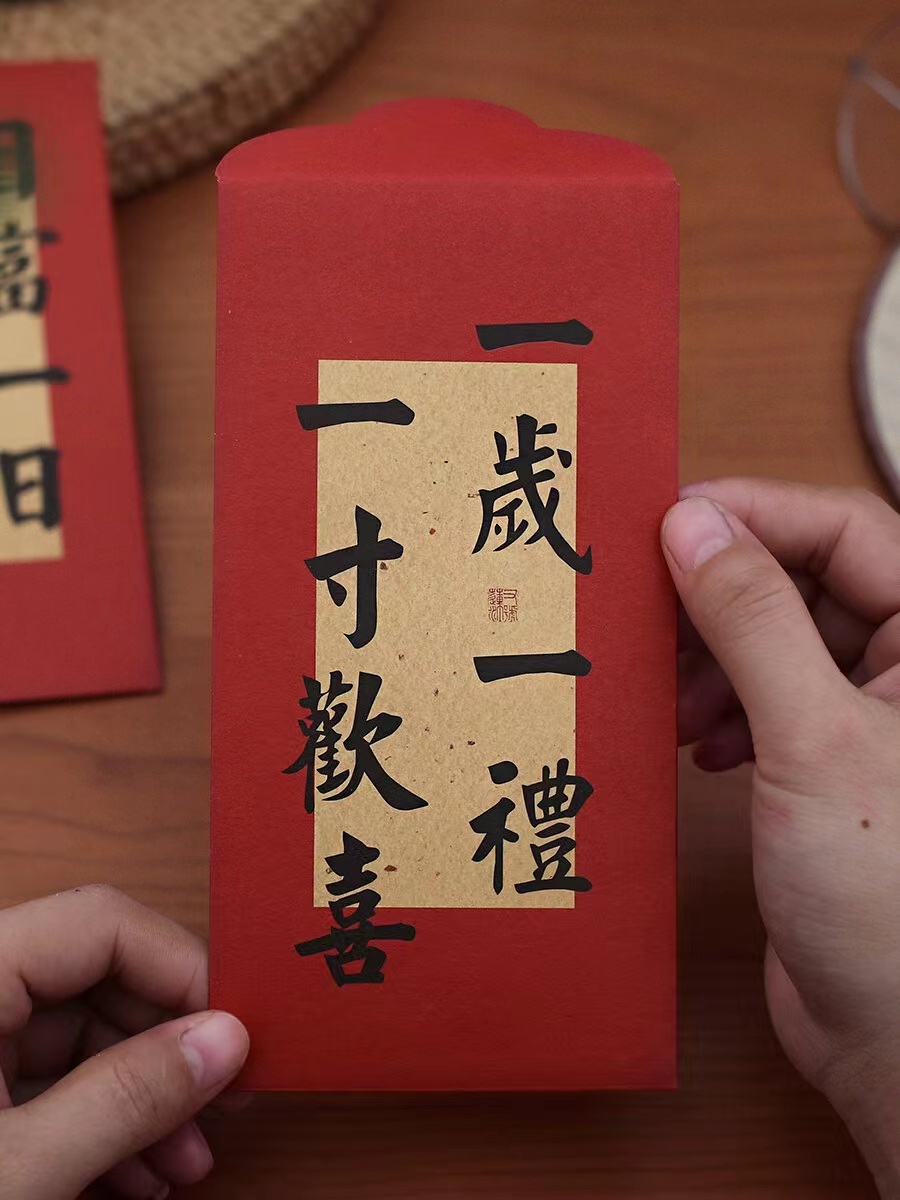 一歲一禮
一寸歡喜
喜一日